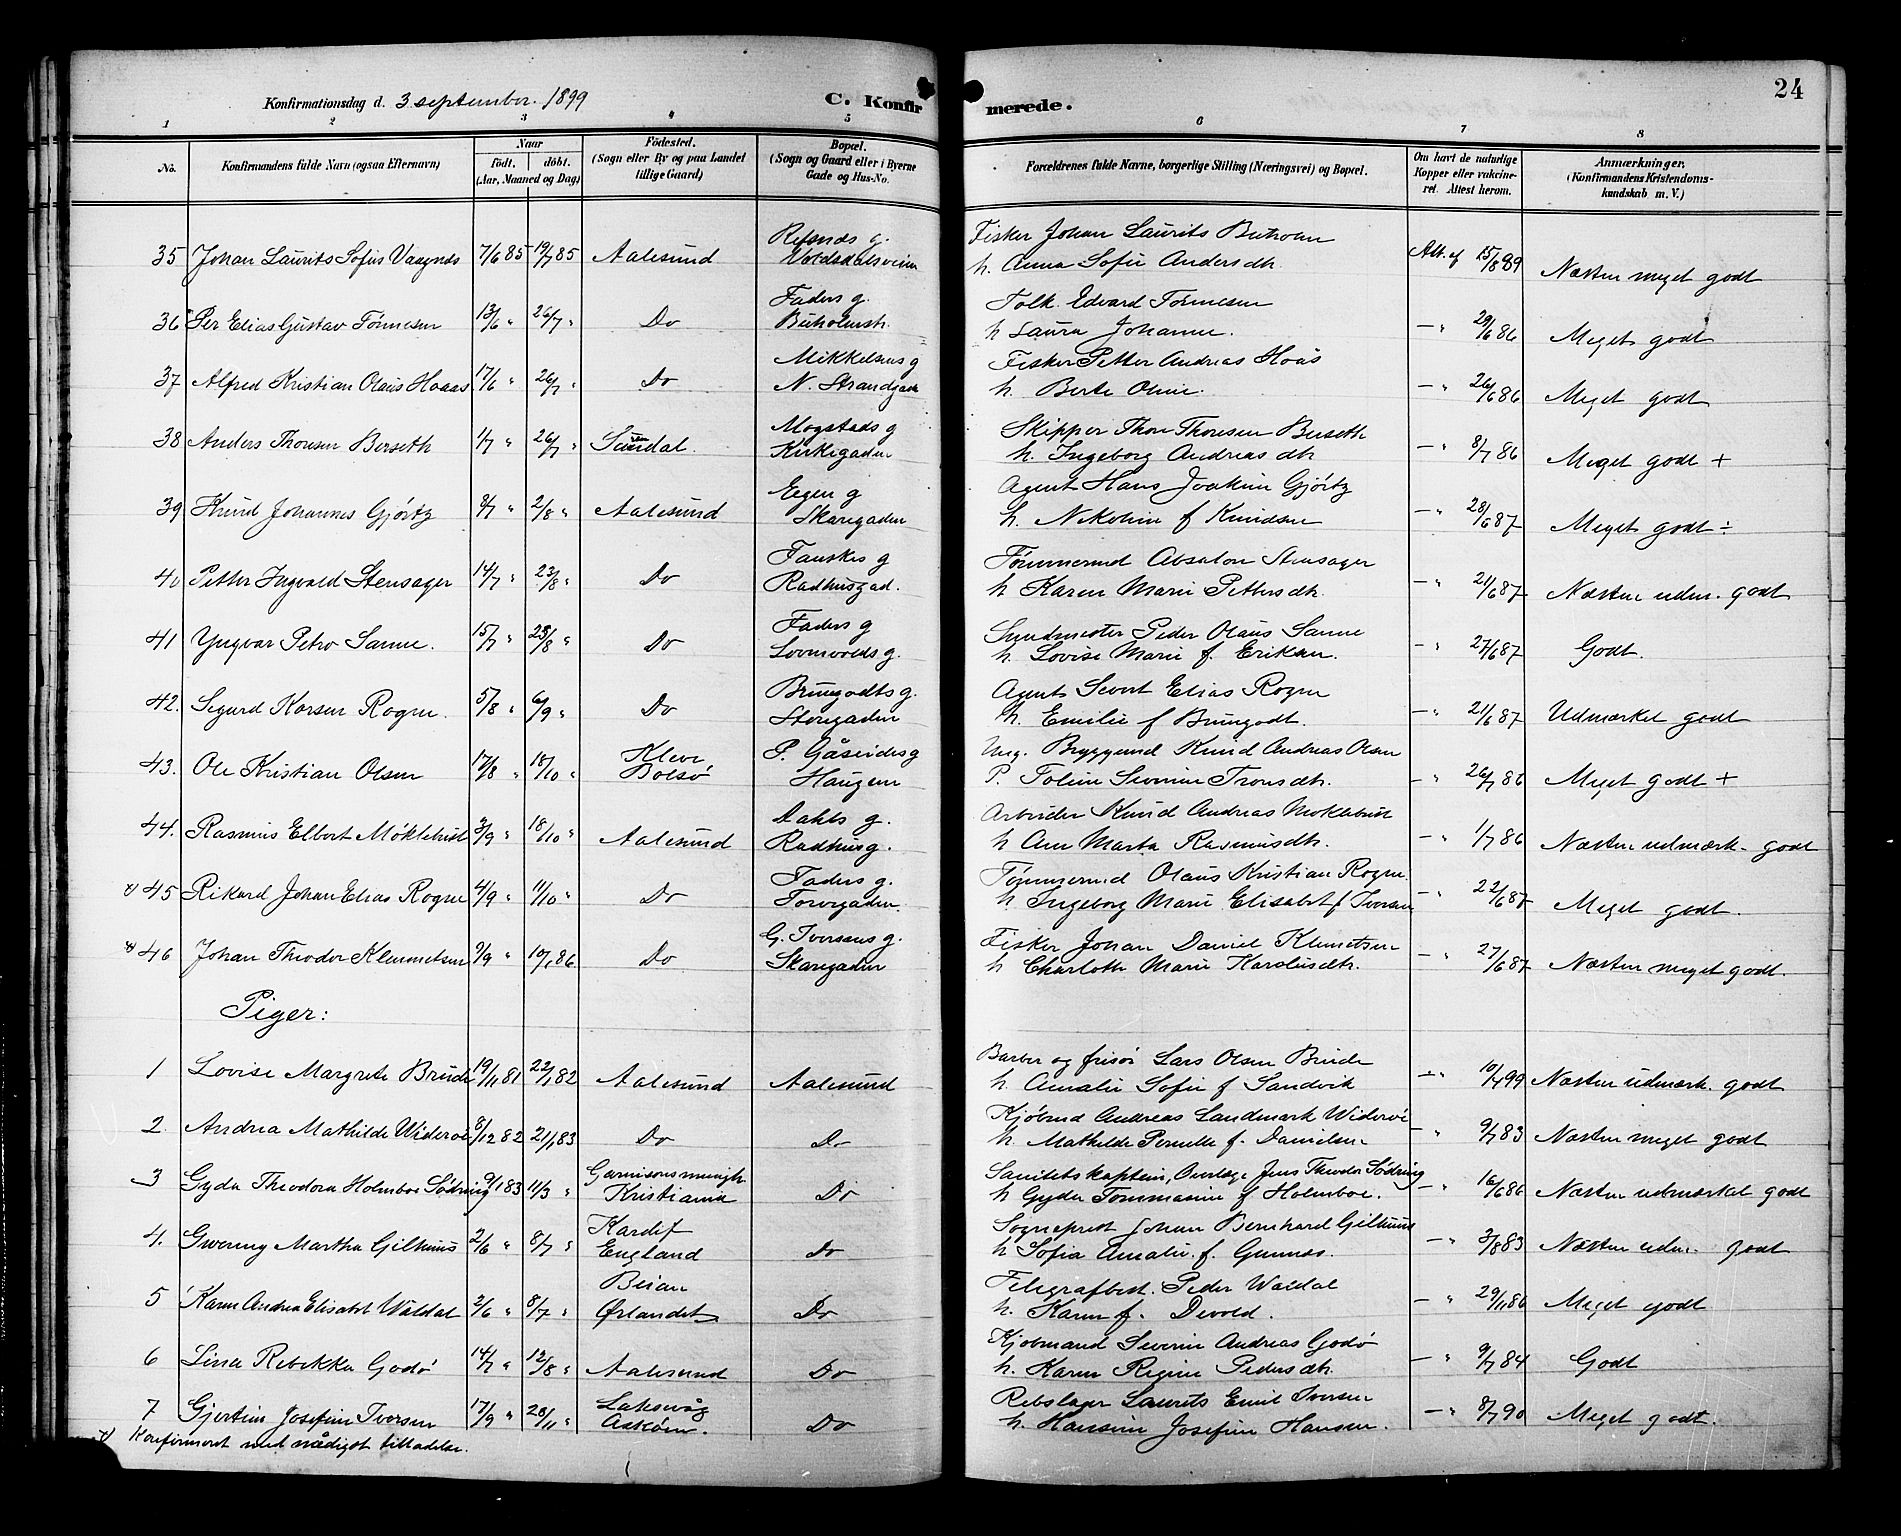 24
Konfirmationsdag d. 3 september 1899
C. Konfirmerede.
1 2 3 4 5 6 7 8
No. Konfirmandens fulde Navn (ogsaa Efternavn)
Naar
födt. döbt.
(Aar, Maaned og Dag)
Födested.
(Sogn eller By og paa Landet
tillige Gaard)
Bopæl.
(Sogn og Gaard eller i Byerne
Gade og Hus-No.
Forældrenes fulde Navne, borgerlige Stilling (Næringsvei) og Bopæl.
Om havt de naturlige
Kopper eller vakcine-
ret. Attest herom.
Anmærkninger,
(Konfirmandens Kristendoms-
kundskab m. V.)
Refsnds g. Fisker Johan Laurits Buholm
35 Johan Laurits Sofus Vaagnds 7/6 85 19/7 85 Aalesund Voldsdalsveien h. Anna Sofie Andersdtr. Att. af 15/8 89 Næsten meget godt
Faders g. Tolk. Edvard Tønnesen
36 Per Elias Gustav Tønnesen 13/6 " 26/7 " Do Buholmstr. h Laura Johanne. — " 29/6 86 Meget godt
Mikkelsens g Fisker Petter Andreas Hoås
37 Alfred Kristian Olaus Hoaas 17/6 " 26/7 " Do N. Strandgade h. Berte Oline. — " 26/6 86 Meget godt
Mogstads g Skipper Thore Thoresen Berseth
38 Anders Thoresen Berseth 1/7 " 26/7 " Surendal. Kirkegaden h. Ingeborg Andreasdtr — " 8/7 86 Meget godt +
Egen g Agent Hans Joakim Gjørtz
39 Knud Johannes Gjørtz 8/7 " 2/8 " Aalesund Skaregaden h. Nikoline f Knudsen — " 28/6 87 Meget godt ÷
Fauskes g Tømmermd Absalon Stensager
40 Petter Ingvald Stensager 14/7 " 23/8 " Do Radhusgad. h Karen Marie Pettersdtr. — " 21/6 87 Næsten udm. godt
Faders g Sundmester Peder Olaus Sanne
41 Yngvar Petro Sanne. 15/7 " 23/8 " Do Lovnvolds g. h. Lovise Marie f. Eriksen. — " 27/6 87 Godt.
Brungodts g. Agent Severt Elias Rogne
42. Sigurd Korsen Rogne. 5/8 " 6/9 " Do Storegaden h. Emilie f Brungodt. — " 21/6 87 Udmærket godt
Kleve P. Gåseides g Ung. Bryggemd Knud Andreas Olsen
43. Ole Kristian Olsen 17/8 " 18/10 " Bolsø Haugen P. Toline Severine Tronsdtr. — " 26/7 86 Meget godt +
Dahls g. Arbeider Knud Andreas Moklebust
44. Rasmus Elbert Møklebust 2/9 " 18/10 " Aalesund Radhusg. h Ane Marta Rasmusdtr. — " 1/7 86 Næsten udmærk. godt
Faders g. Tømmermd Olaus Kristian Rogne.
45 Rikard Johan Elias Rogne 4/9 " 11/10 " Do Torvegaden. h. Ingeborg Marie Elisabet f Iversen — " 22/6 87 Meget godt.
G. Iversens g. Fisker Johan Daniel Klemetsen
46 Johan Theodor Klemmetsen 9/9 " 10/1 86 Do Skaregaden h Charlotte Marie Karolusdtr. — " 27/6 87 Næsten meget godt.
Piger:
Barber og frisør Lars Olsen Brude
1 Lovise Margrete Brude 19/11 81 22/1 82 Aalesund Aalesund h. Amalie Sofie f Sandvik — " 10/4 99 Næsten udmærk. godt
Kjøbmd Andreas Landmark Widerøe
2. Andrea Mathilde Widerøe 8/12 82 21/1 83 Do Do h. Mathilde Pernille f. Danielsen — " 9/7 83 Næsten meget godt
Garnisonsmenigh Sanitetskaptein, Overlæge Jens Theodor Sødring
3 Gyda Theodora Holmboe Sødring 9/1 83 11/3 " Kristiania Do h Gyda Tommasine f Holmboe. — " 16/6 86 Næsten udmærket godt
Kardif Sogneprest Johan Bernhard Gilhuus
4. Gwenny Martha Gilhuus 2/6 " 8/7 " England Do h Sofia Amalie f. Gunnes. — " 3/8 83 Næsten udm. godt
Beian Telegrafbest. Peder Waldal
5 Karen Andrea Elisabet Waldal 2/6 " 8/7 " Ørlandet Do h. Karen f. Devold. — " 29/11 86 Meget godt
Kjøbmand Severin Andreas Godø
6 Lina Rebekka Godø 14/7 " 12/8 " Aalesund Do h. Karen Regine Pedersdtr. — " 9/7 84 Godt
Laksevåg Rebslager Laurits Emil Iversen
7 Gjertine Josefine Iversen 17/9 " 28/11 " Askøen. Do h. Hansine Josefine Hansen. — " 8/7 90 Meget godt.
Konfirmeret med nådigst tilladelse.